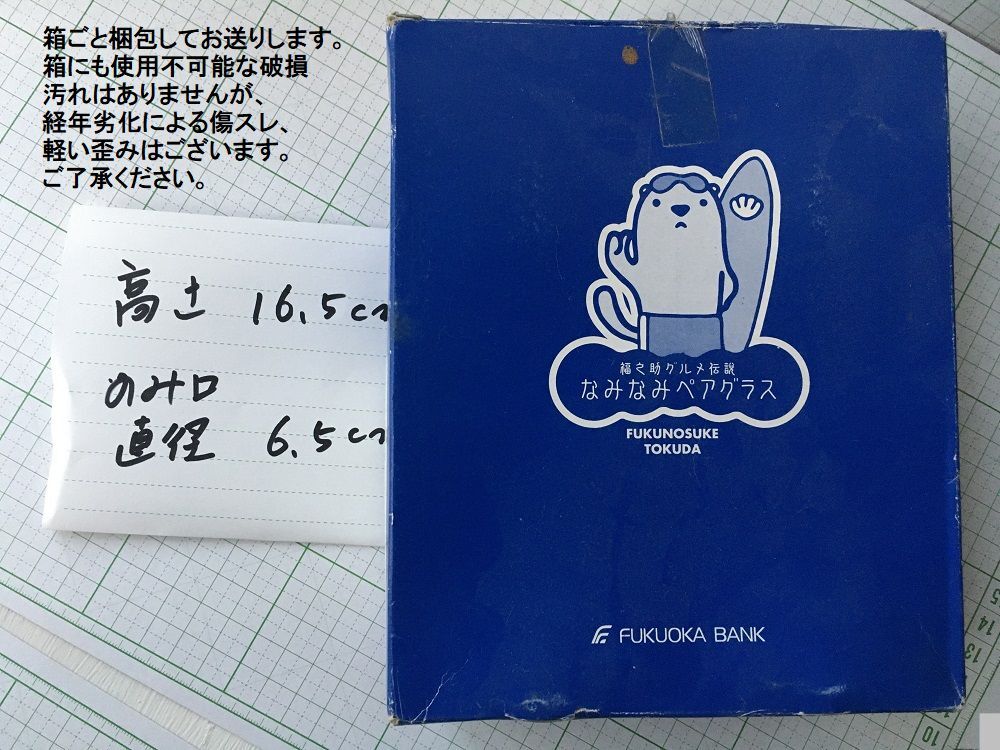 箱ごと梱包してお送りします。
箱にも使用不可能な破損
汚れはありませんが、
経年劣化による傷スレ、
軽い歪みはございます。
ご了承ください。
高さ 16.5cm
のみ口
直径 6.5cm
福之助グルメ伝説
なみなみペアグラス
FUKUNOSUKE
TOKUDA
FUKUOKA BANK
15
14
13
11
10